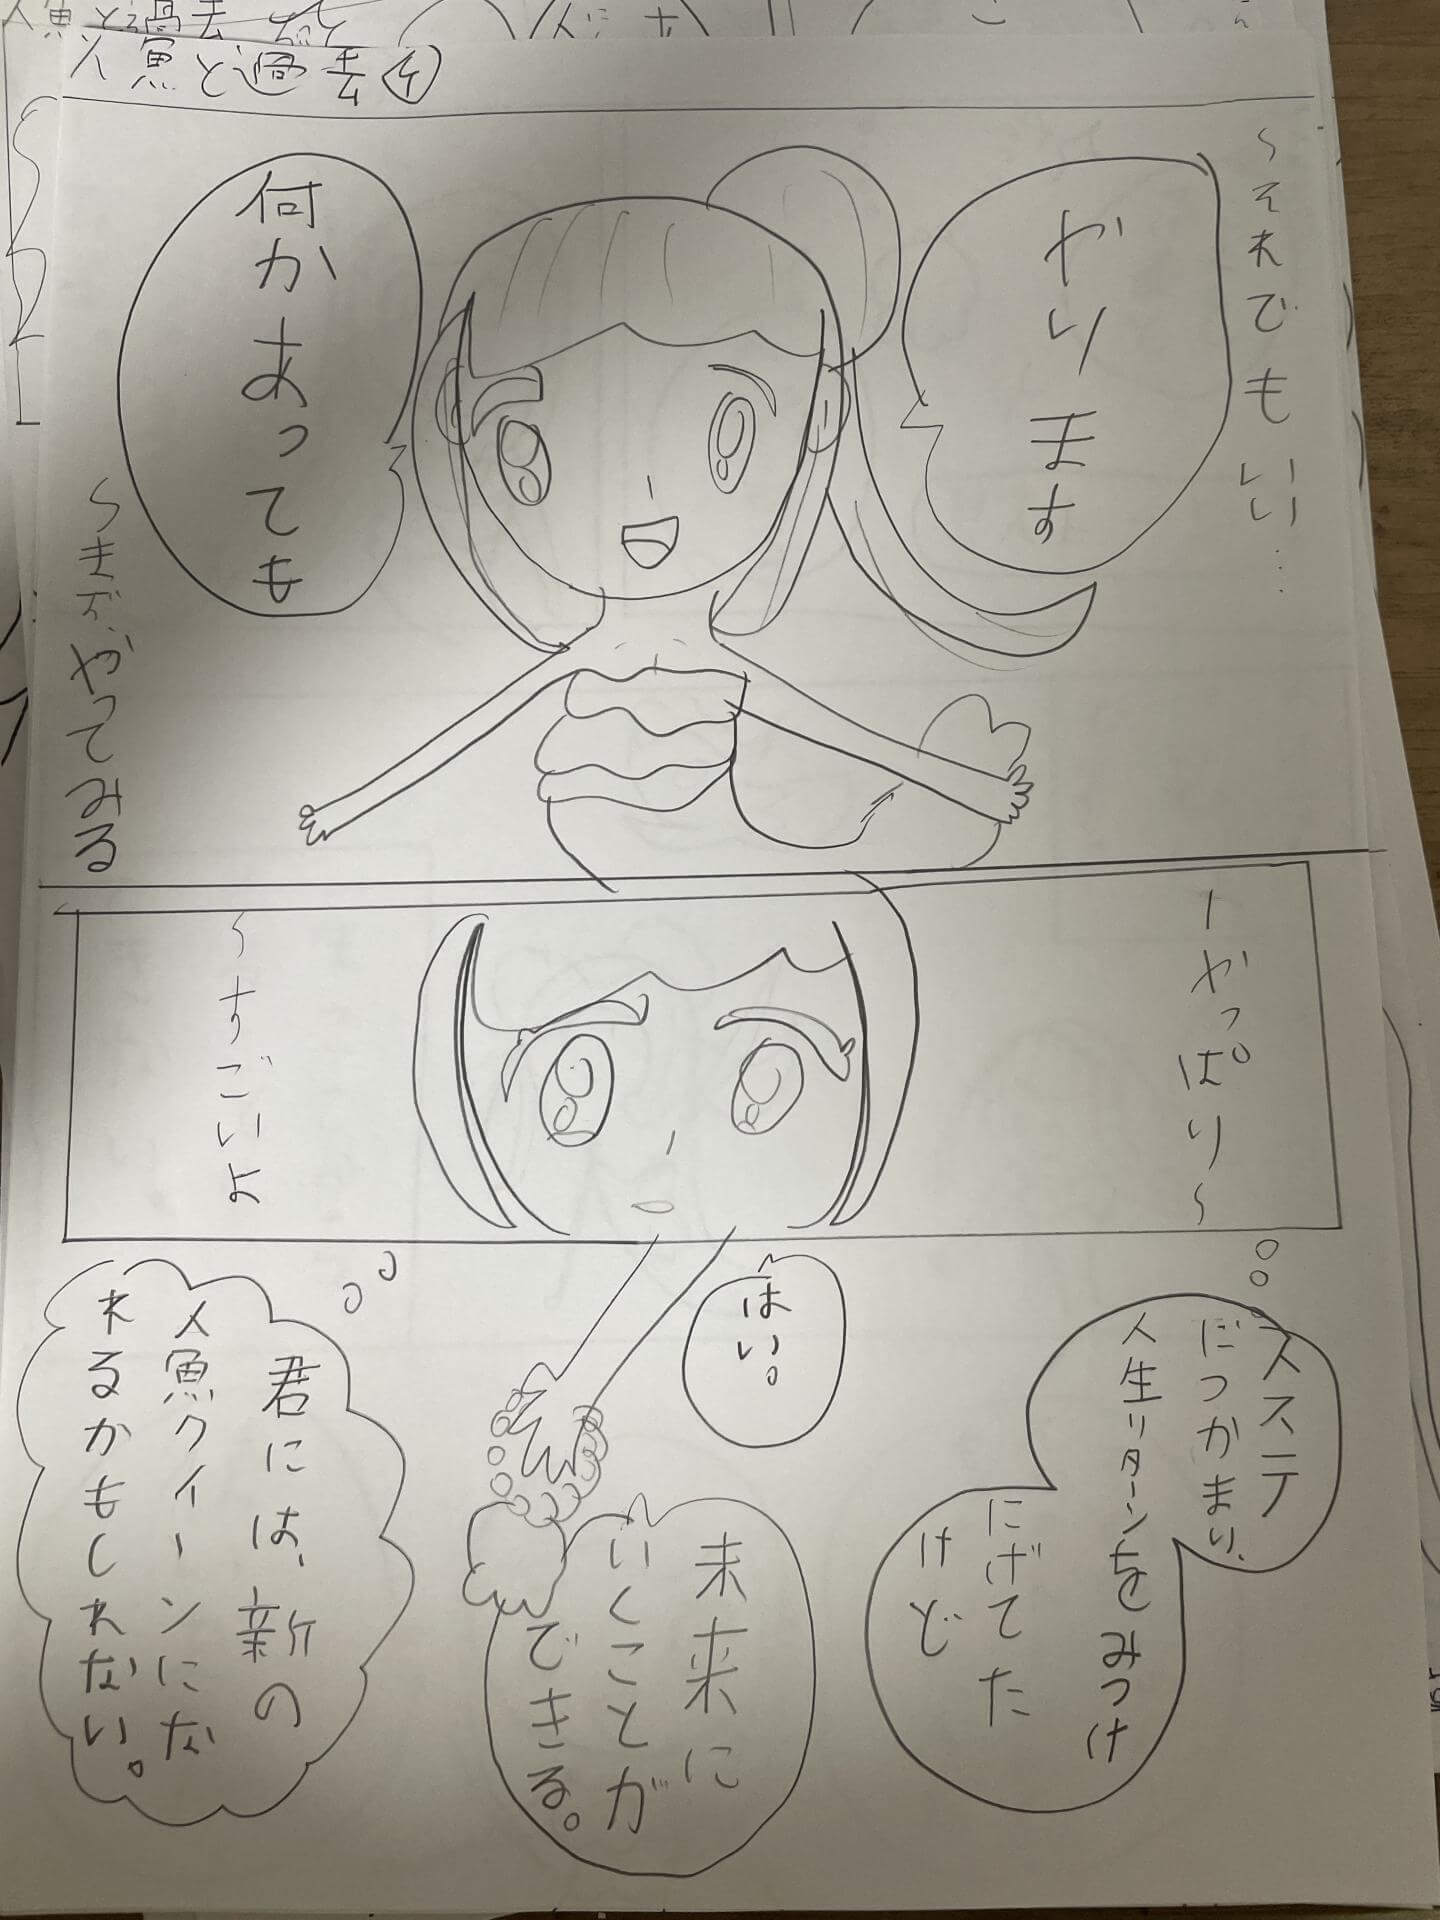 人魚と過去
人魚と過去④
〜それでもいい…
やります
何かあっても
〜まずやってみる
ーやっぱり〜
〜すごいよ
ススステ
につかまり、
人生リターンをみつけ
にげてた
けど
はい。
未来に
いくことが
できる。
君には、新の
人魚クイーンにな
れるかもしれない。